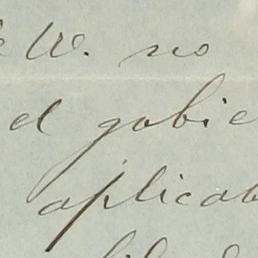 W. no
el gobie
aplicab